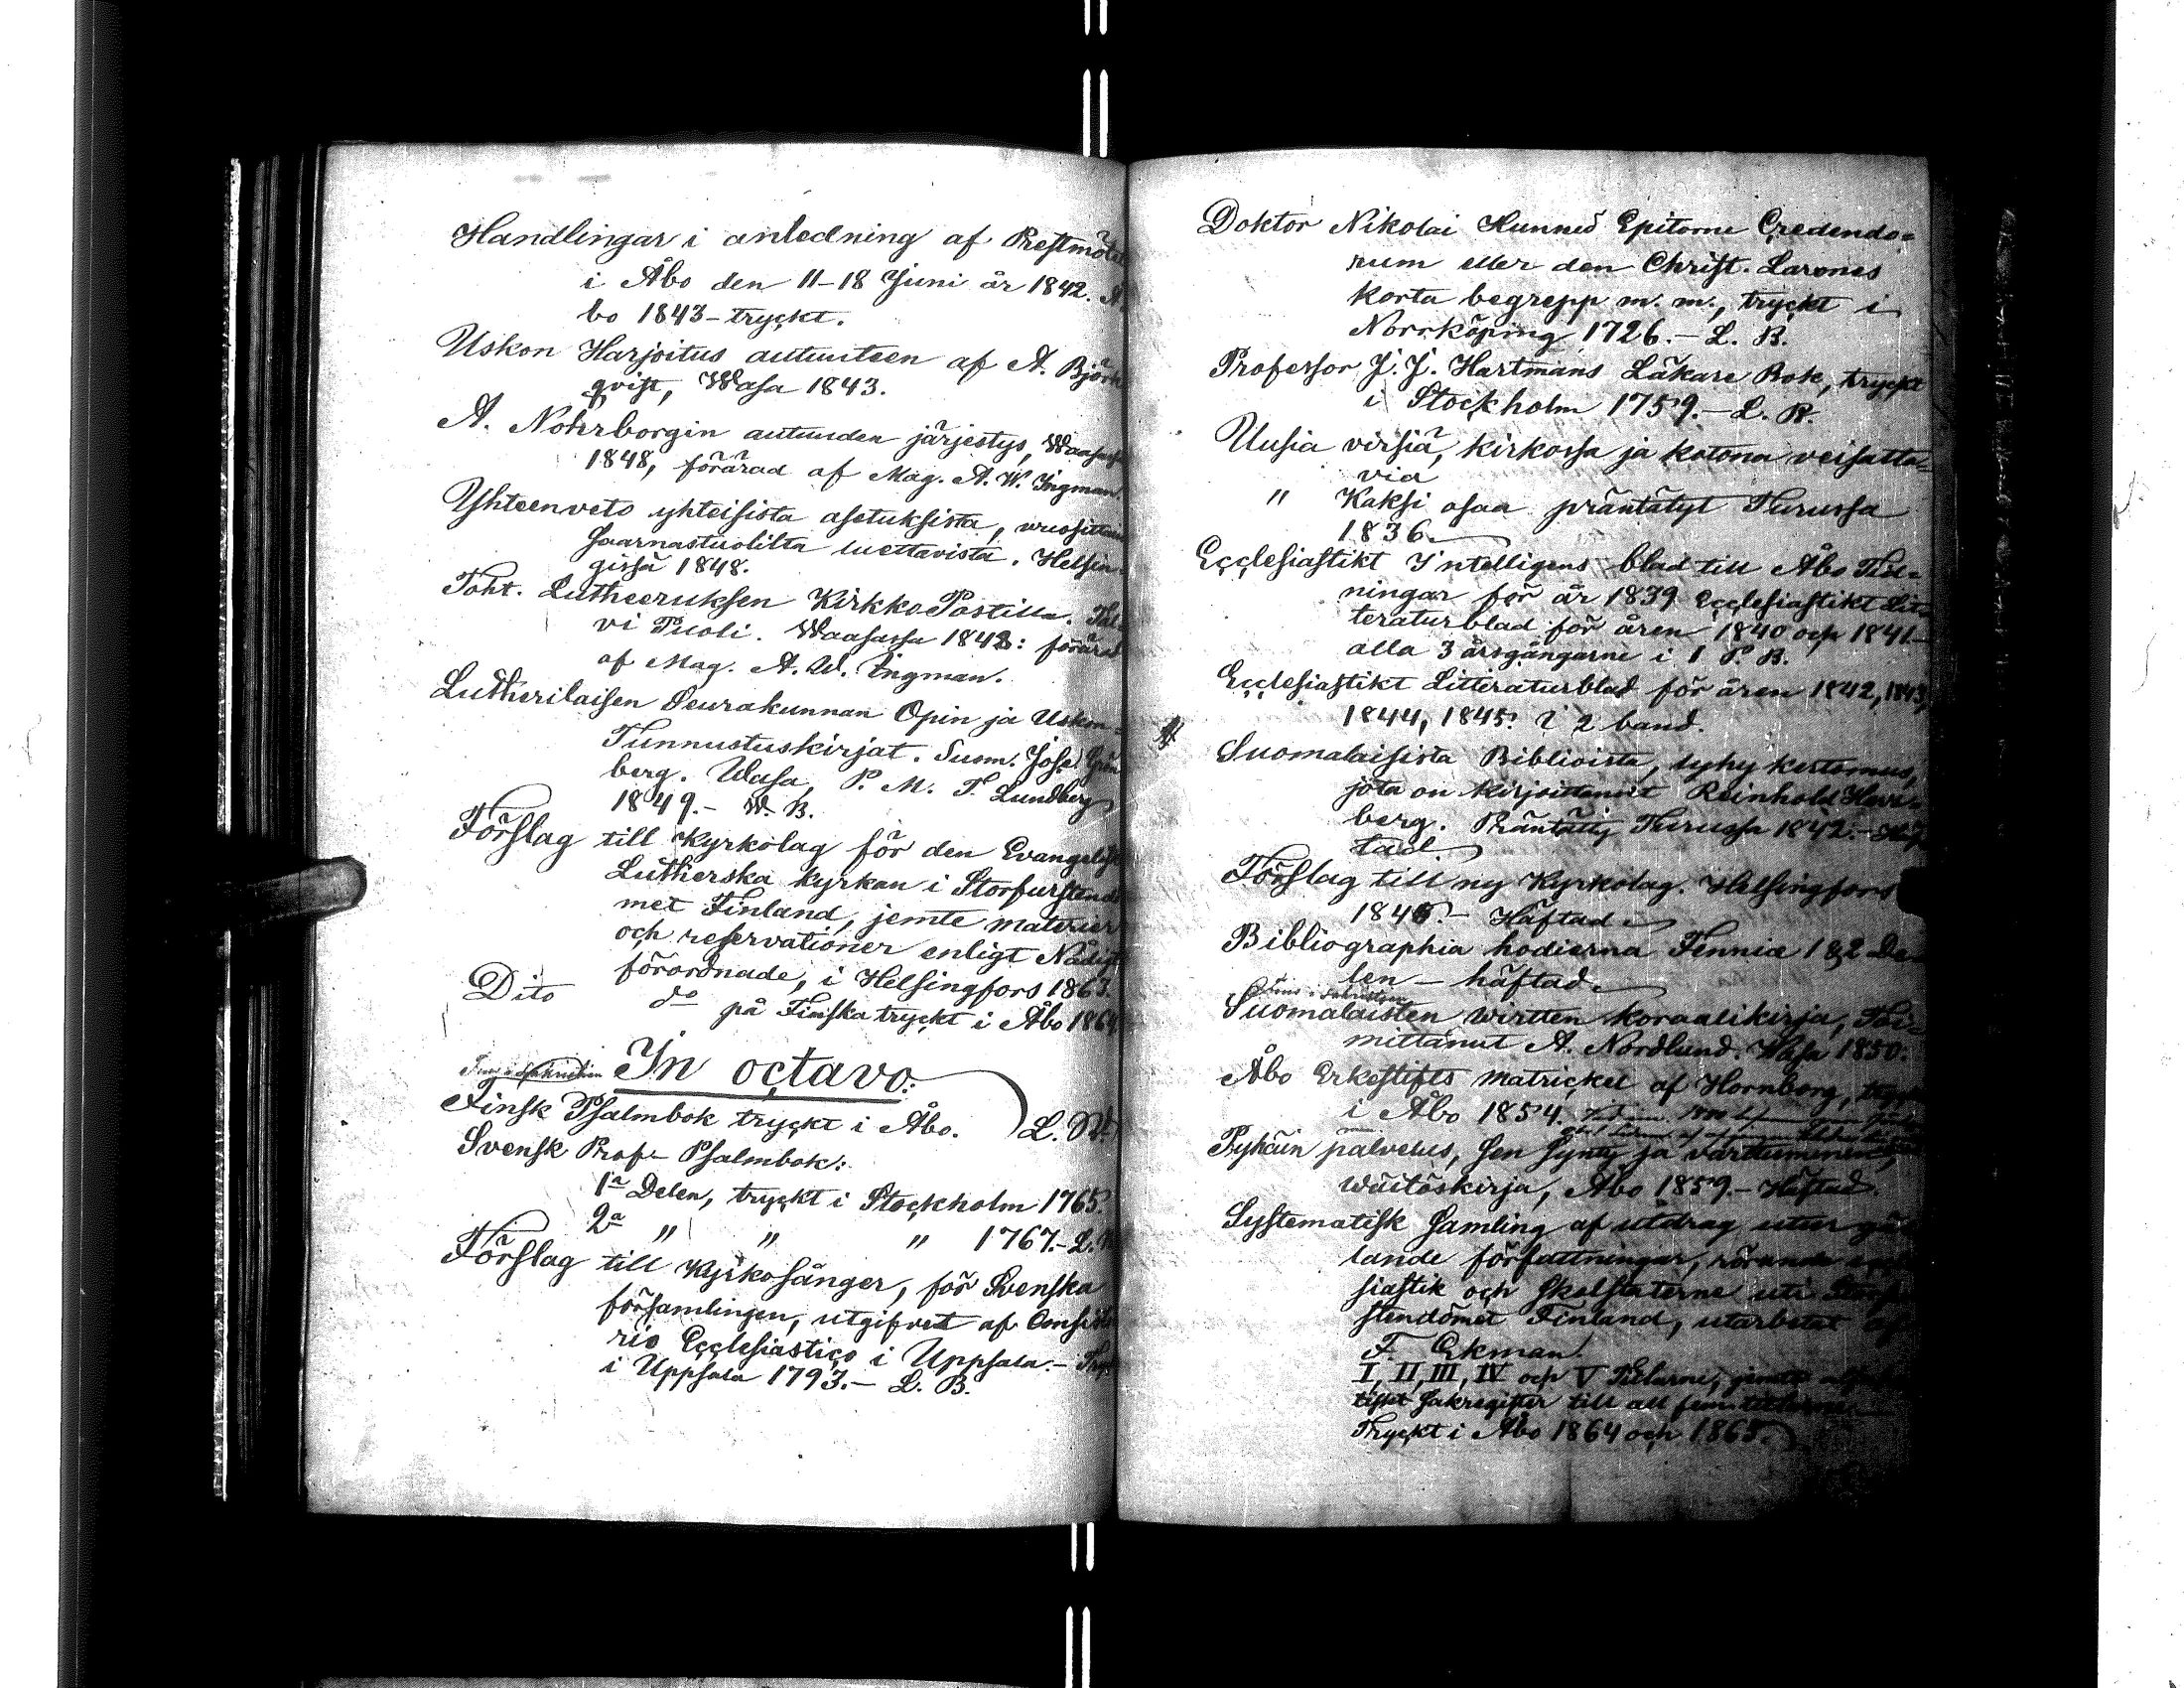 Handlingar i anledning af Prestmötet
i Åbo den 11-18 Juni år 1842. Å
bo 1843 - tryckt.
Uskon Harjoitus autuuteen af A. Björk
qvist, Wasa 1843.
A. Nohrborgin autuuden järjestys, Waasassa
1848, förärad af Mag. A. W. Ingman.
Yhteenveto yhteisista asetuksista, vuosittain
Saarnastuolilta luettavista. Helsin-
gissä 1848.
Toht. Lutheeruksen Kirkko Postilla. Tal-
vi Puoli. Waasassa 1848: förärad
af Mag. A. W. Ingman.
Lutherilaisen Seurakunnan Opin ja Uskon-
Tunnustuskirjat. Suom. Jos. Grön
berg. Wasa, P. M. T. Lundberg
1849. - W. B.
Förslag till Kyrkolag för den Evangelisk
Lutherska kyrkan i Storfurstendö
met Finland, jemte materier
och reservationer enligt Nådigt
förordnade, i Helsingfors 1863.
Dito do på Finska tryckt i Åbo 1864
In octavo:
Finsk Psalmbok tryckt i Åbo. L. B.
Svensk Prof- Psalmbok:
1a Delen, tryckt i Stockholm 1765
2a " " " 1767. - L. B.
Förslag till Kyrkosånger, för Svenska
församlingen, utgifvet af Consisto
rio Ecclesiastico i Uppsala. - Tryc
i Uppsala 1793. - L. B.
Doktor Nikolai Hunnes Epitome Credendo=
rum eller den Christ. Larones
korta begrepp m. m., tryckt i
Norrköping 1726. - L. B.
Professor J. J. Hartmans Läkare Bok, tryckt
i Stockholm 1759. - L. B.
Uusia virsiä, kirkossa ja kotona veisatta=
via
" Kaksi osaa präntätyt Turussa
1836.
Ecclesiastikt Intelligens blad till Åbo Tid=
ningar för år 1839 Ecclesiastikt Lit=
teraturblad för åren 1840 och 1841 -
alla 3 årsgångarne i 1 P. B.
Ecclesiastikt Litteraturblad för åren 1842, 1843,
1844, 1845. i 2 band.
Suomalaisista Biblioista, lyhy kertomus,
jota on kirjoittanut Reinhold Herr=
berg. Präntätty Turussa 1842. - Häf
tad.
Förslag till ny Kyrkolag. Helsingfors
1845. - Häftad.
Bibliographia hodierna Fenniæ 1 & 2 De-
len - häftad.
Suomalaisten wirtten koraalikirja, Toi-
mittanut A. Nordlund. Wasa 1850.
Åbo Erkestifts matrickel af Hornborg,
i Åbo 1854.
Pyhäin palvelus, sen synty ja varttuminen,
wäitöskirja, Åbo 1859. - Häftad.
Systematisk samling af utdrag utur gäl
lande författningar, rörande
siastik och skolstaterne uti Storfur
stendömet Finland, utarbetat af
F. Ekman.
I, II, III, IV och V Delarne, jemte alfabe
tiskt sakregister till all fem delarne
Tryckt i Åbo 1864 och 1865.